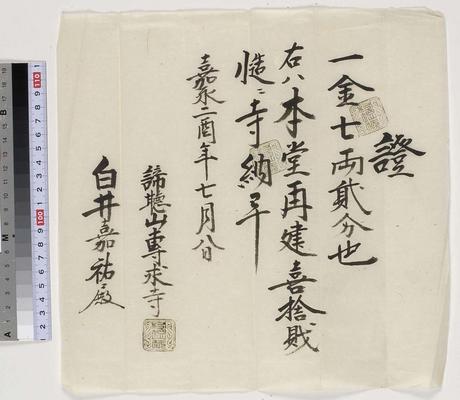 證
一金七両貳分也
右ハ本堂再建喜捨財
慥ニ寺納畢
嘉永二酉年七月八日
諦聴山専求寺
白井嘉祐殿